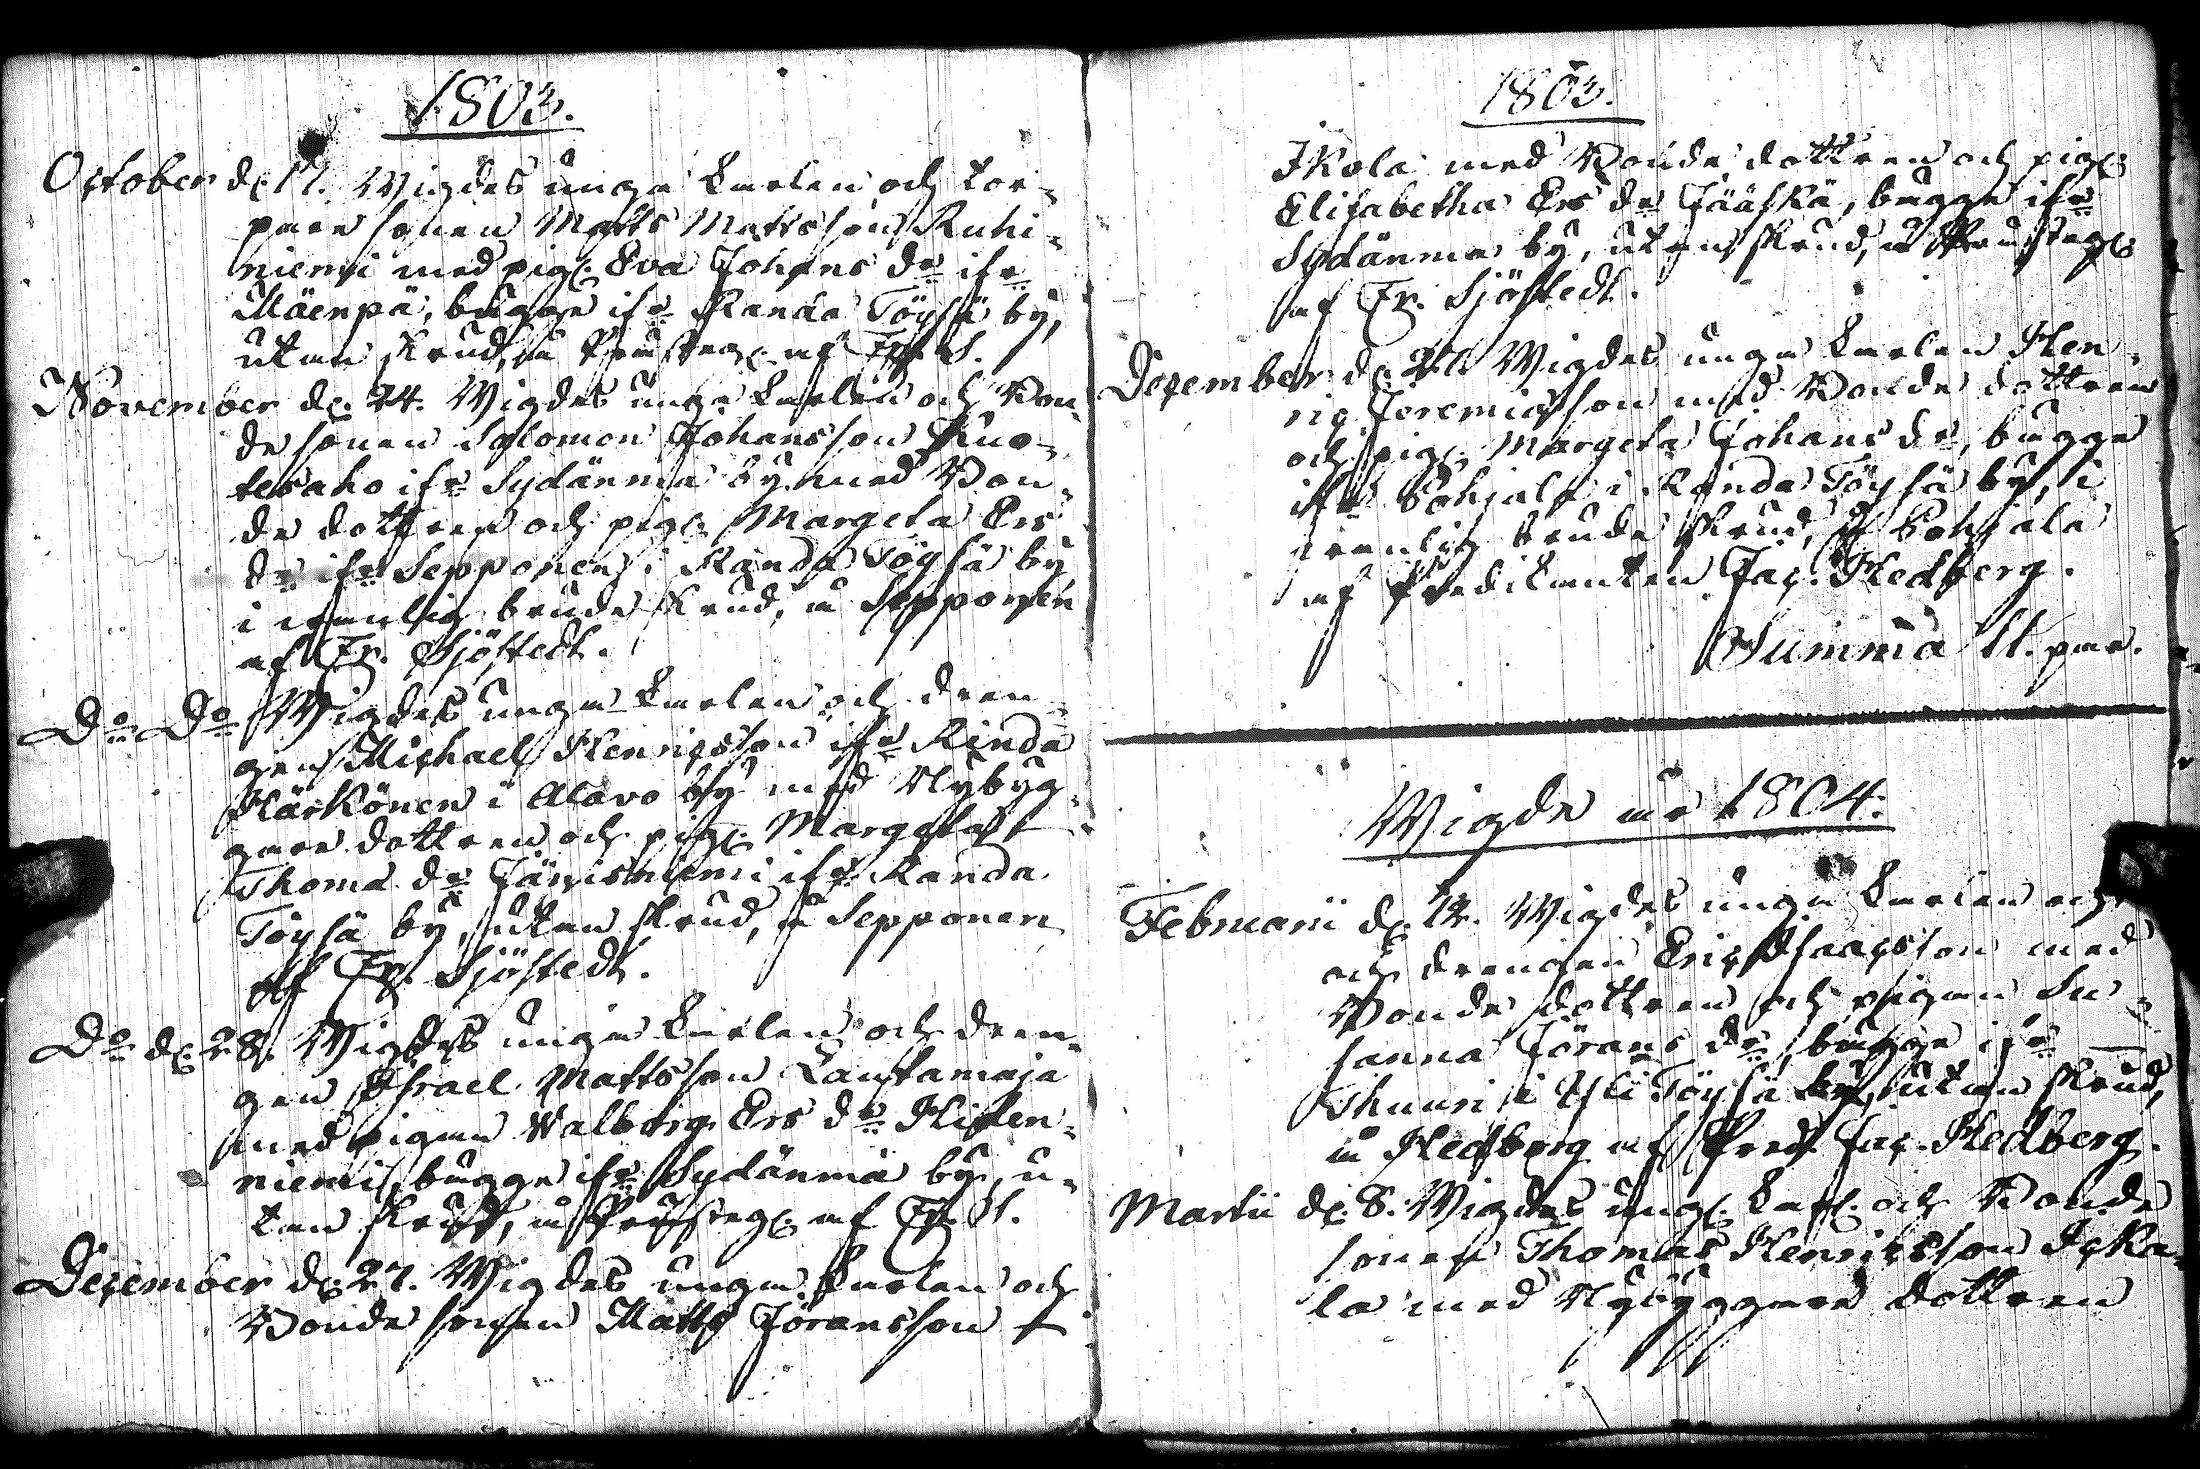 1803.
October d. 17. Wigdes unga karlen och tor-
pare sonen Matts Mattsson Ruhi-
niemi med pig. Eva Johans dr ifr
Mäenpä, bägge ifr Randa Töysä by,
utan skrud, å Prusteg. af Fr. S.
November d. 24. Wigdes unga karlen och Bon-
de sonen Solomon Johansson Kuo-
tesaho ifr Sydänma by med Bon-
de dottren och pig. Margeta Ers
dr ifr Sepponen i Randa Töysä by
i wanlig brude skrud, å Sepponen
af Fr. Sjöstedt.
Do Do Wigdes unga karlen och dren-
gen Michael Henricsson ifr Rinda
Härkönen i Alavo by med Nybyg-
gare dottren och pig. Margeta
Thoma dr Jänisniemi ifr Randa
Töysä by, utan skrud, å Sepponen
af Fr. Sjöstedt.
Do d. 28. Wigdes unga karlen och dren-
gen Israel Mattsson Lautamaja
med pigan Walborg Ers dr Hiden-
niemi, bägge ifr Sydänmä by, u-
tan skrud, å Prusteg. af Fr. S.
December d. 27. Wigdes unga karlen och
Bonde sonen Matts Jöransson
1803.
Ikola med Bonde dottren och pig.
Elisabetha Ers dr Jääskä, bägge ifr
Sydänma by, utan skrud, å Prusteg.
af Fr. Sjöstedt.
December d. 27. Wigdes unga karlen Hen-
ric Jeremiæsson med Bonde dottren
och pig. Margeta Johans dr, bägge
ifr Pohjala i Randa Töysä by, i
wanlig brude skrud, å Pohjala
af Predikanten Jac. Hedberg.
Summa 11. par.
Wigde år 1804.
Februarii d. 12. Wigdes unga karlen och
och drengen Eric Isaacsson med
Bonde dottren och pigan Su-
sanna Jörans dr, bägge ifr
Thuuri i Yli Töysä by, utan skrud,
å Hedberg af Pred. Jac. Hedberg.
Martii d. 8. Wigdes ung. karl. och Bonde
sonen Thomas Henricsson Icka-
la med Nybyggare dottren